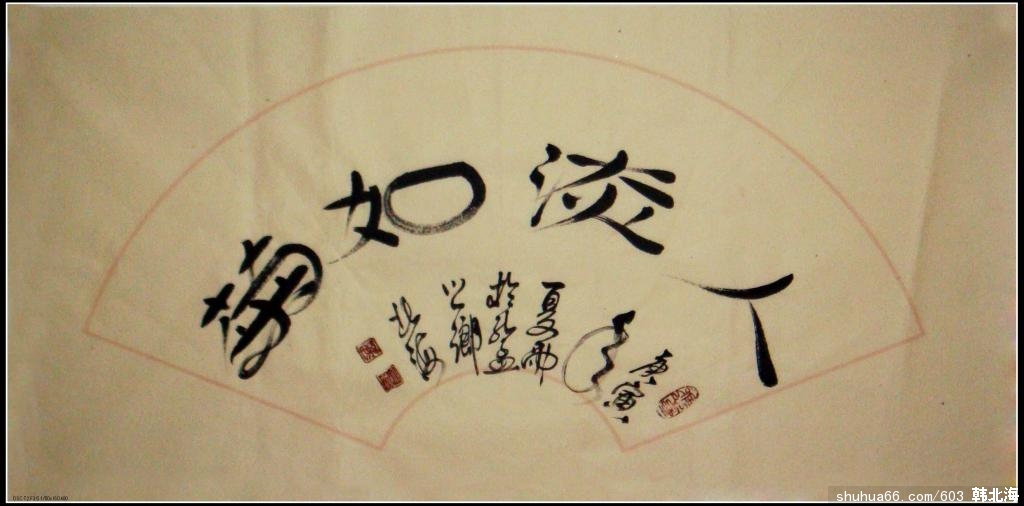 人淡如菊
庚寅
年
夏雨
於孔孟
之乡
北海
shuhua66.com/603 韩北海